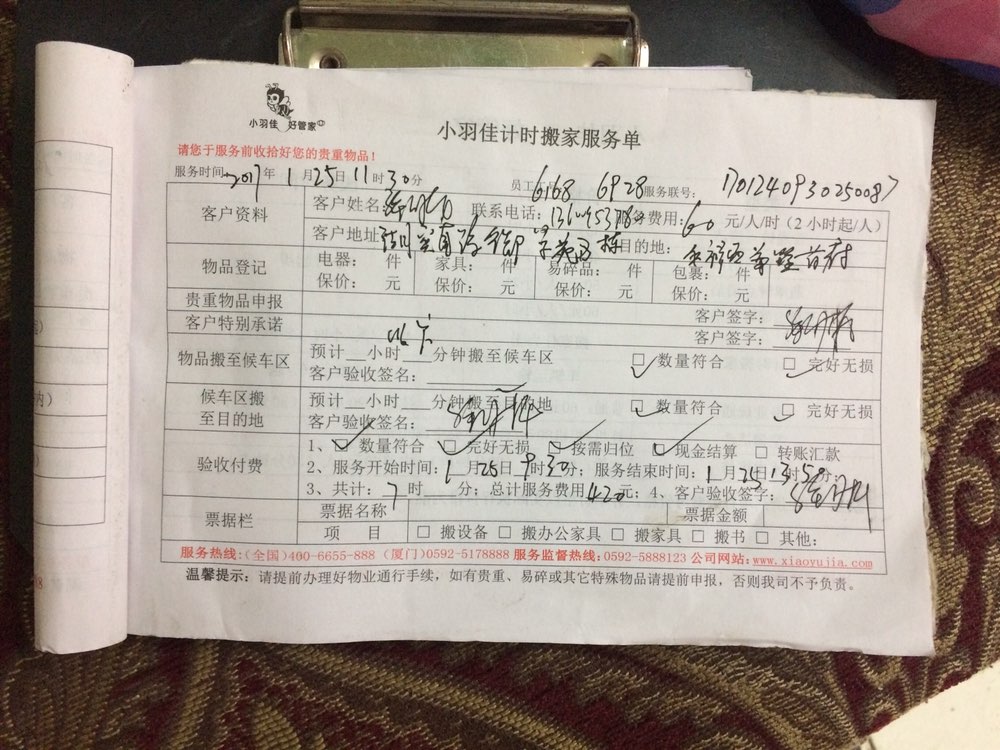 小羽佳 好管家
小羽佳计时搬家服务单
请您于服务前收拾好您的贵重物品！
服务时间 2017年1月25日11时30分 员工 6168 6928 服务联号： 1701240930250087
客户资料 客户姓名 联系电话： 服务费用：60元/人/时（2小时起/人）
客户地址 目的地：
物品登记 电器： 件 家具： 件 易碎品： 件 包裹： 件
保价： 元 保价： 元 保价： 元 保价： 元
贵重物品申报 客户签字：
客户特别承诺 以下 客户签字：
物品搬至候车区 预计__小时__分钟搬至候车区 数量符合 完好无损
客户验收签名：
候车区搬至目的地 预计__小时__分钟搬至目的地 数量符合 完好无损
客户验收签名：
验收付费 1、 数量符合 完好无损 按需归位 现金结算 转账汇款
2、服务开始时间：1月25日9时30分；服务结束时间：1月25日13时50分；
3、共计：7时__分；总计服务费用420元；4、客户验收签字：
票据栏 票据名称 票据金额
项 目 搬设备 搬办公家具 搬家具 搬书 其他：
服务热线:(全国)400-6655-888 (厦门)0592-5178888 服务监督热线:0592-5888123 公司网站:www.xiaoyujia.com
温馨提示：请提前办理好物业通行手续，如有贵重、易碎或其它特殊物品请提前申报，否则我司不予负责。